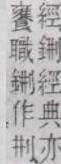 經鉶經典亦
饔職鉶作